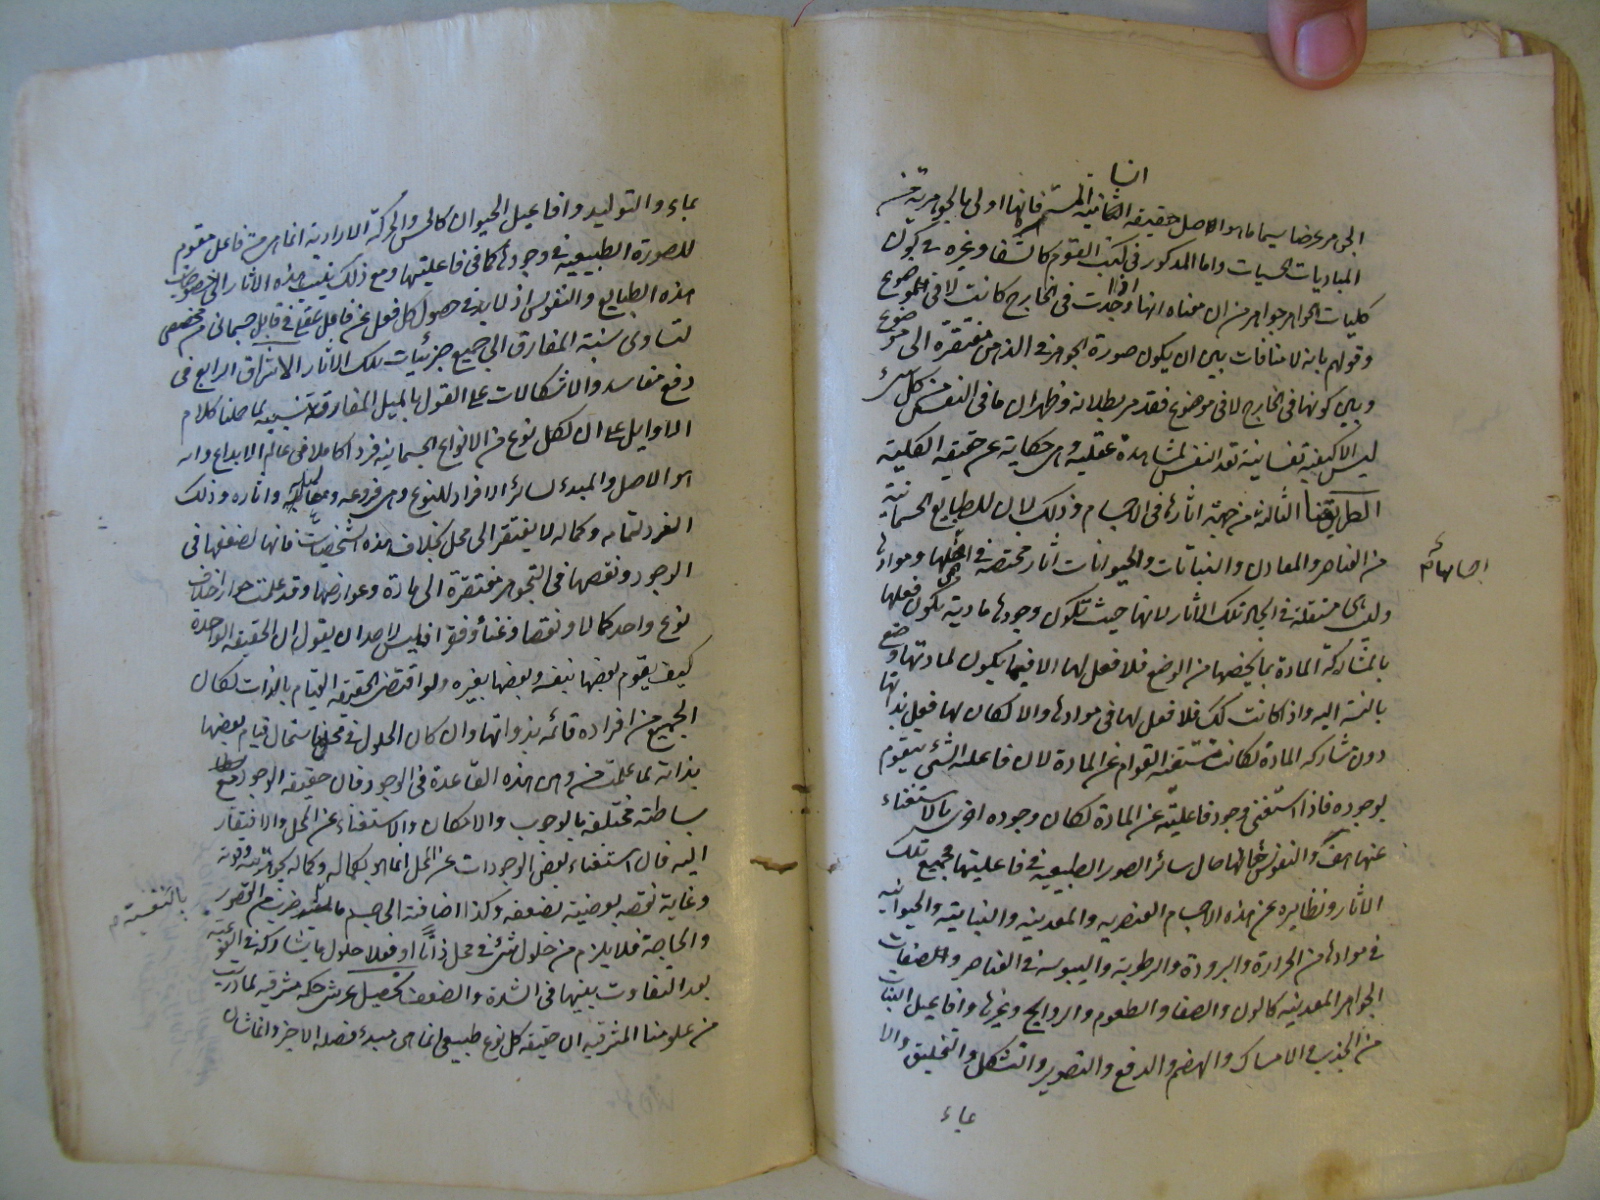 انبا
الجوهر عرضا سيما ما هو الاصل حقيقة الثانية المستمر فانها اولى بالجوهرية من
الماديات الحسيات واما المذكور فى كتب القوم كالشفا وغيره فى كون
كليات الجواهر جواهر من ان معناه انها اذا وجدت فى الخارج كانت لا فى الموضوع
وقولهم بانه لا منافات بين ان يكون صورة الجوهر فى الذهن مفتقرة الى موضوع
وبين كونها فى الخارج لا فى موضوع فقد مر بطلانه وظهر ان ما فى النفس من كل شىء
ليس الا كيفية نفسانية تعد النفس لمشاهدة عقلية وهى حكاية عن حقيقة الكلية
الطريق الثالث من جهة اثارها فى الاجسام وذلك لان للطبايع الجسمانية
من العناصر والمعادن والنباتات والحيوانات اثار مختصة فى وموادها
اجسامها
وليست مستقلة فى ايجاد تلك الاثار لانها حيث تكون وجودها مادية يكون فعلها
بالمشاركة المادة بما يخصها من الوضع فلا فعل لها الا فيما يكون لمادتها وضع
بالنسبة اليه واذا كانت كك فلا فعل لها فى موادها والا لكان لها فعل بذاتها
دون مشاركة المادة لكانت مستغنية القوام عن المادة لان فاعلية الشئ يتقوم
بوجوده فاذا استغنى وجود فاعليته عن المادة لكان وجوده اخرى بالاستغناء
عنها هف والنفوس حالها حال سائر الصور الطبيعية فى فاعليتها فجميع تلك
الاثار ونظايره عن هذه الاجسام العنصرية والمعدنية والنباتية والحيوانية
فى موادها من الحرارة والبرودة والرطوبة واليبوسة فى العناصر والصفات
الجواهر المعدنية كاللون والصفا والطعوم والروايح وغيرها وافاعيل النبات
من الجذب والامساك والهضم والدفع والتصوير والتشكل والتخليق والا
نماء
نماء والتوليد وافاعيل الحيوان كالحس والحركة الارادية انما هى من فاعل مقوم
للصورة الطبيعية فى وجودها كما فى فاعليتها ومع ذلك نسبت هذه الاثار الى خصوصيات
هذه الطبايع والنفوس اذ لا بد فى حصول كل فعل عن فاعل عقلى فى قابل جسمانى من مخصص
لتساوى نسبة المفارق الى جميع جزئيات تلك الاثار الاشراق الرابع فى
دفع مفاسد والاشكالات على القول بالمثل المفارقة تنبيه لما حملنا كلام
الاوايل على ان لكل نوع من الانواع الجسمانية فردا كاملا فى عالم الابداع وانه
هو الاصل والمبدء لسائر الافراد للنوع وهى فروعه ومعاليله واثاره وذلك
الفرد لتمامه وكماله لا يفتقر الى محل بخلاف هذه الشخصيات فانها لضعفها فى
الوجود ونقصها فى التجوهر مفتقرة الى مادة وعوارضها وقد علمت جواز اختلاف
نوع واحد كمالا ونقصا وغناء وفقرا فليس لاحد ان يقول ان الحقيقة الواحدة
كيف يقوم بعضها بنفسه وبعضها بغيره ولو اقتضى الحقيقة القيام بالذات لكان
الجميع من افراده قائمة بذواتها وان كان الحلول فى محل استحال قيام بعضها
بذاته لما علمت من وهن هذه القاعدة فى الوجود فان حقيقة الوجود مع
بساطته مختلفة بالوجوب والامكان والاستغناء عن المحل والافتقار
اليه فان استغناء بعض الوجودات عن المحل انما هو بكماله وكماله بجوهريته وقوته
وغاية نقصه بعرضيته بضعفه وكذا اضافته الى جسم ضرب من القصور
بالنفسية
والحاجة فلا يلزم من حلول شئ فى محل ذاتا او فعلا حلول ما يشاركه فى النوعية
بعد التفاوت بينهما فى الشدة والضعف تحصيل عرشى حكمة مشرقية لما دريت
من علومنا المشرقية ان حقيقة كل نوع طبيعى انما هى مبدء فصله الاخير وانما شان